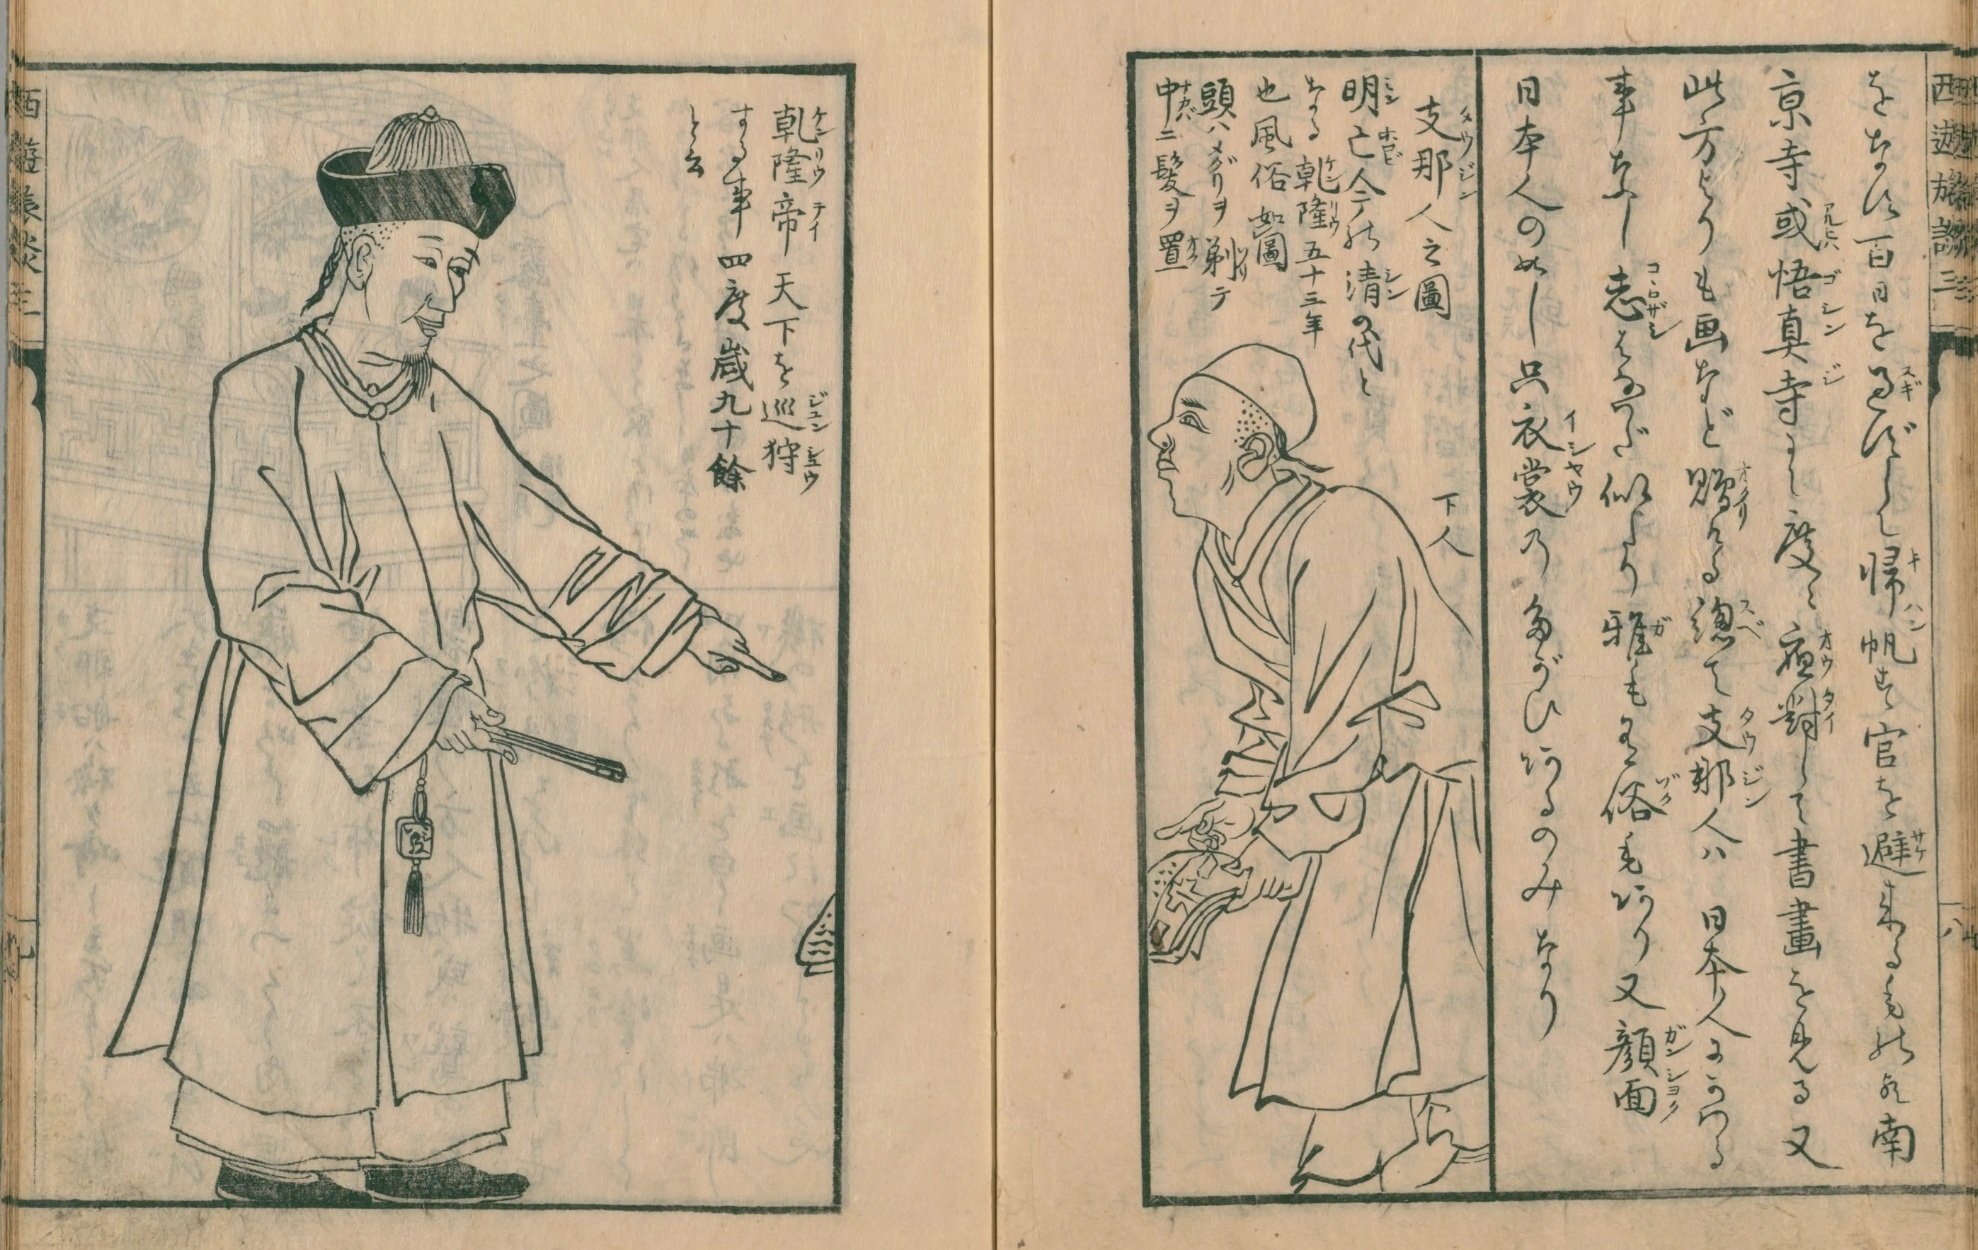 をなさバ百日を過ずして帰帆す官を避来るもの是南
京寺或悟真寺にて度々應對して書畫を見る又
此方よりも画など贈りける總て支那人ハ日本人にかはる
事なし志をなバだ似たり雅もあれバ俗もあり又顔面
日本人の如し只衣裳のちがひあるのみなり
支那人之圖
明亡今の清の代と
なる乾隆五十三年
也風俗如圖
頭ハメグリヲ剃テ
中ニ髪ヲ置
下人
乾隆帝天下を巡狩
する事四度歳九十餘
と云
西遊旅談三
八
西遊旅談三
九